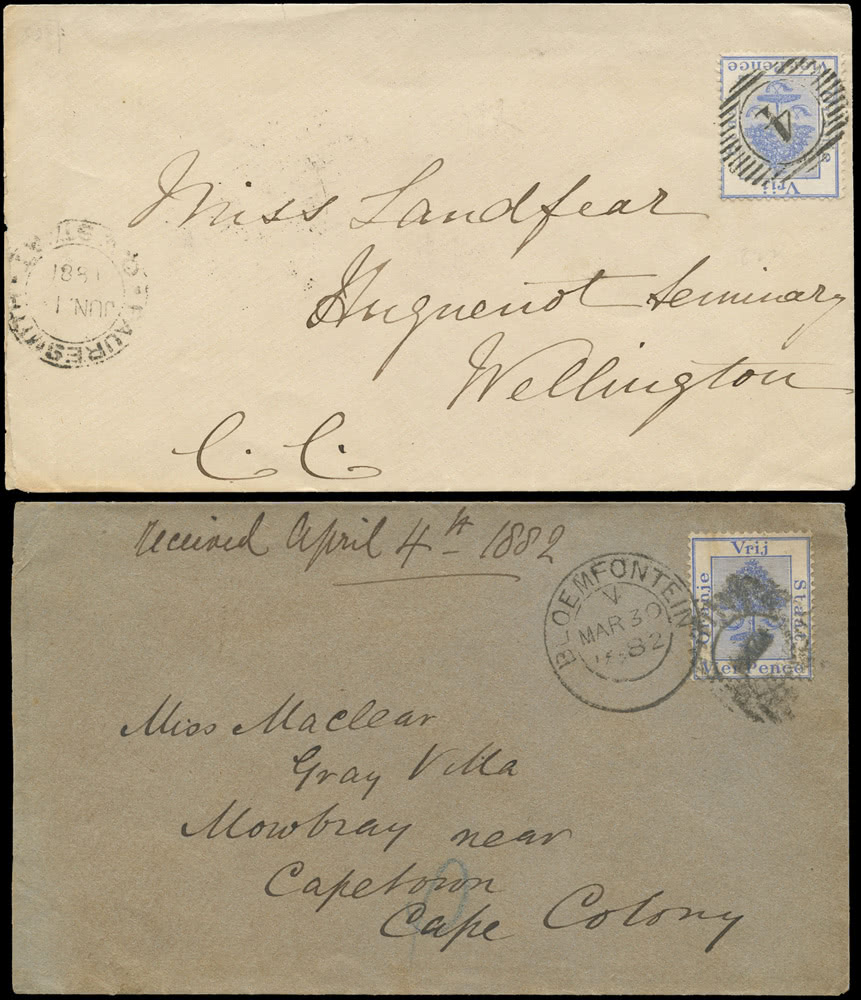 Vrij
Vier Pence
4
Miss Landfear
Huguenot Seminary
Wellington
C. C.
FAURESMITH
JUN. 1
1881
Received April 4th 1882
Vrij
Oranje
Staat
Vier Pence
BLOEMFONTEIN
V
MAR 30
82
Miss Maclear
Gray Villa
Mowbray near
Capetown
Cape Colony